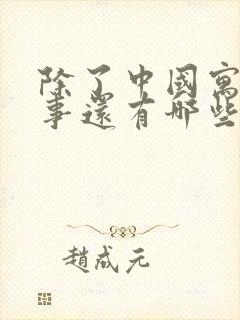 除了中國寓
事還有哪些
趙成元